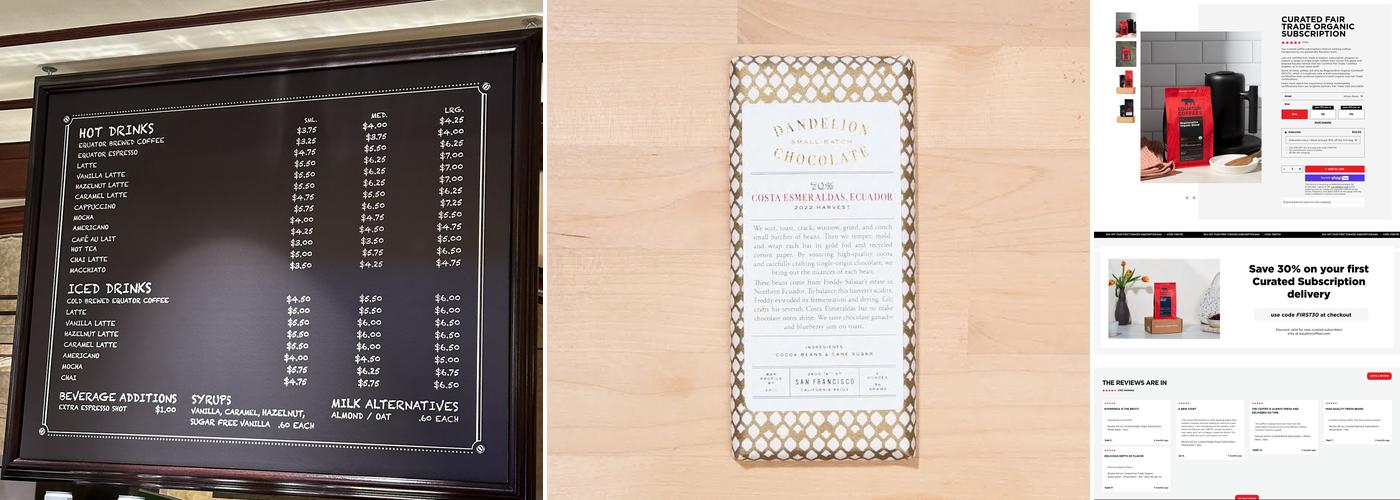 SML. MED. LRG.
HOT DRINKS
EQUATOR BREWED COFFEE $3.75 $4.00 $4.25
EQUATOR ESPRESSO $3.25 $3.75 $4.00
LATTE $4.75 $5.50 $6.25
VANILLA LATTE $5.50 $6.25 $7.00
HAZELNUT LATTE $5.50 $6.25 $7.00
CARAMEL LATTE $5.50 $6.25 $7.00
CAPPUCCINO $4.75 $5.50 $6.25
MOCHA $5.50 $6.25 $7.25
AMERICANO $4.00 $4.75
CAFÉ AU LAIT $4.25 $4.75 $5.50
HOT TEA $3.00 $3.50 $5.00
CHAI LATTE $5.00 $5.75 $6.50
MACCHIATO $3.50 $4.25 $4.75
ICED DRINKS
COLD BREWED EQUATOR COFFEE $4.50 $5.50 $6.00
LATTE $5.00 $5.50 $6.00
VANILLA LATTE $5.50 $6.00 $6.50
HAZELNUT LATTE $5.50 $6.00 $6.50
CARAMEL LATTE $5.50 $6.00 $6.50
AMERICANO $4.00 $4.50 $5.00
MOCHA $5.75
CHAI $4.75 $5.75 $6.50
BEVERAGE ADDITIONS
EXTRA ESPRESSO SHOT $1.00
SYRUPS
VANILLA, CARAMEL, HAZELNUT,
SUGAR FREE VANILLA .60 EACH
MILK ALTERNATIVES
ALMOND / OAT .60 EACH
DANDELION
SMALL-BATCH
CHOCOLATE
70%
COSTA ESMERALDAS, ECUADOR
2022 HARVEST
We sort, roast, crack, winnow, grind, and conch
small batches of beans. Then we temper, mold,
and wrap each bar in gold foil and recycled
cotton paper. By sourcing high-quality cocoa
and carefully crafting single-origin chocolate, we
bring out the nuances of each bean.
These beans come from Freddy Salazar's estate in
Northern Ecuador. To balance this harvest's acidity,
Freddy extended its fermentation and drying. Eric
crafts his seventh Costa Esmeraldas bar to make
chocolate notes shine. We taste chocolate ganache
and blueberry jam on toast.
INGREDIENTS
COCOA BEANS & CANE SUGAR
BAR
PROFILE
BY
2600 16TH ST
SAN FRANCISCO
CALIFORNIA 94103
2
OUNCES
56
GRAMS
CURATED FAIR
TRADE ORGANIC
SUBSCRIPTION
EQUATOR
COFFEES
Save 30% on your first
Curated Subscription
delivery
use code FIRST30 at checkout
Discount valid for new curated subscribers
only at equatorcoffees.com
THE REVIEWS ARE IN
WRITE A REVIEW
A NEW START
THE COFFEE IS ALWAYS FRESH AND
DELIVERED ON TIME
HIGH QUALITY FRESH BEANS
DELICIOUS DEPTH OF FLAVOR